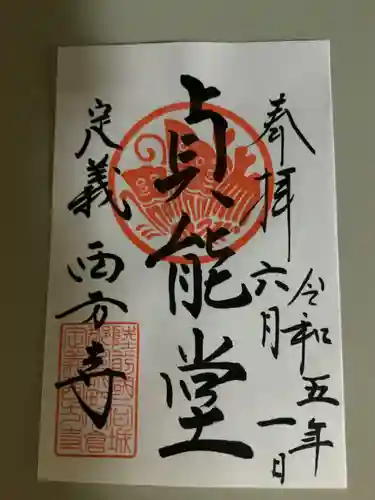 奉拝
令和五年
六月一日
貞能堂
定義
西方寺